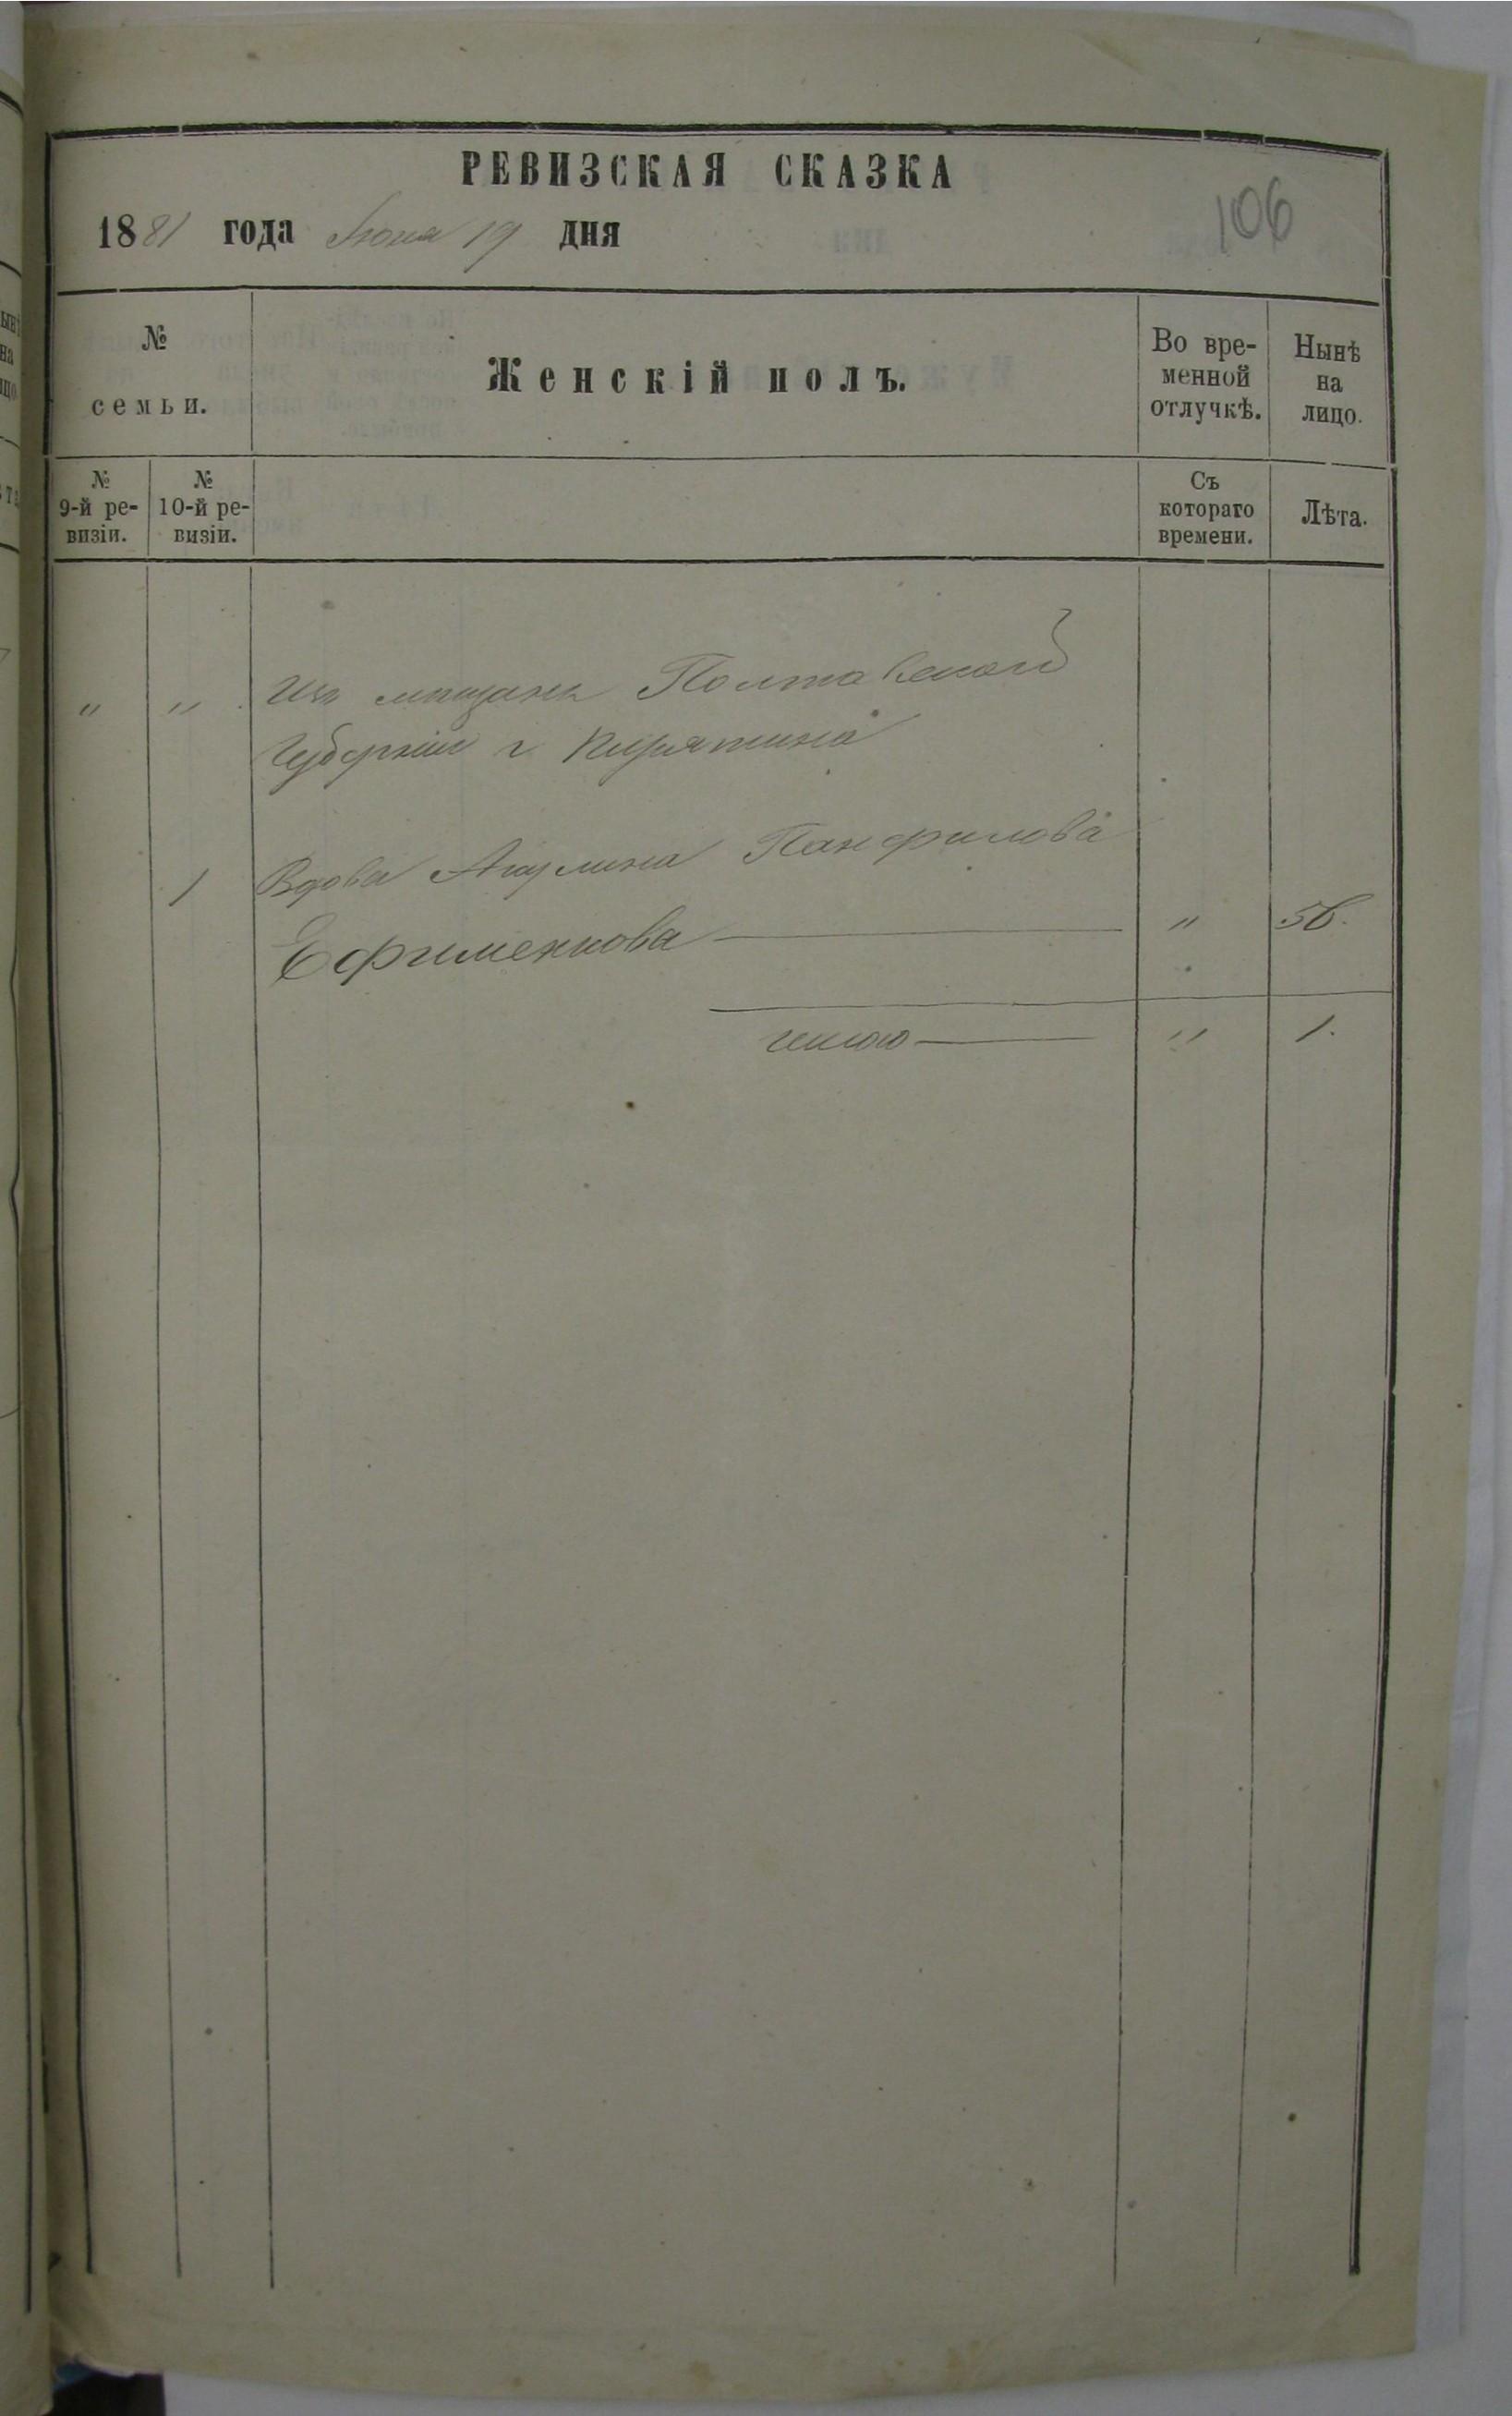 РЕВИЗСКАЯ СКАЗКА
1881 года Іюня 19 дня
106
№ семьи.
Женскій полъ.
Во вре-
менной
отлучкѣ.
Нынѣ
на
лицо.
№
9-й ре-
визіи.
№
10-й ре-
визіи.
Съ
котораго
времени.
Лѣта.
" " Изъ мѣщанъ Полтавской
Губерніи г. Пирятина
1 Вдова Акулина Панфилова
Ефименкова " 56.
итого " 1.